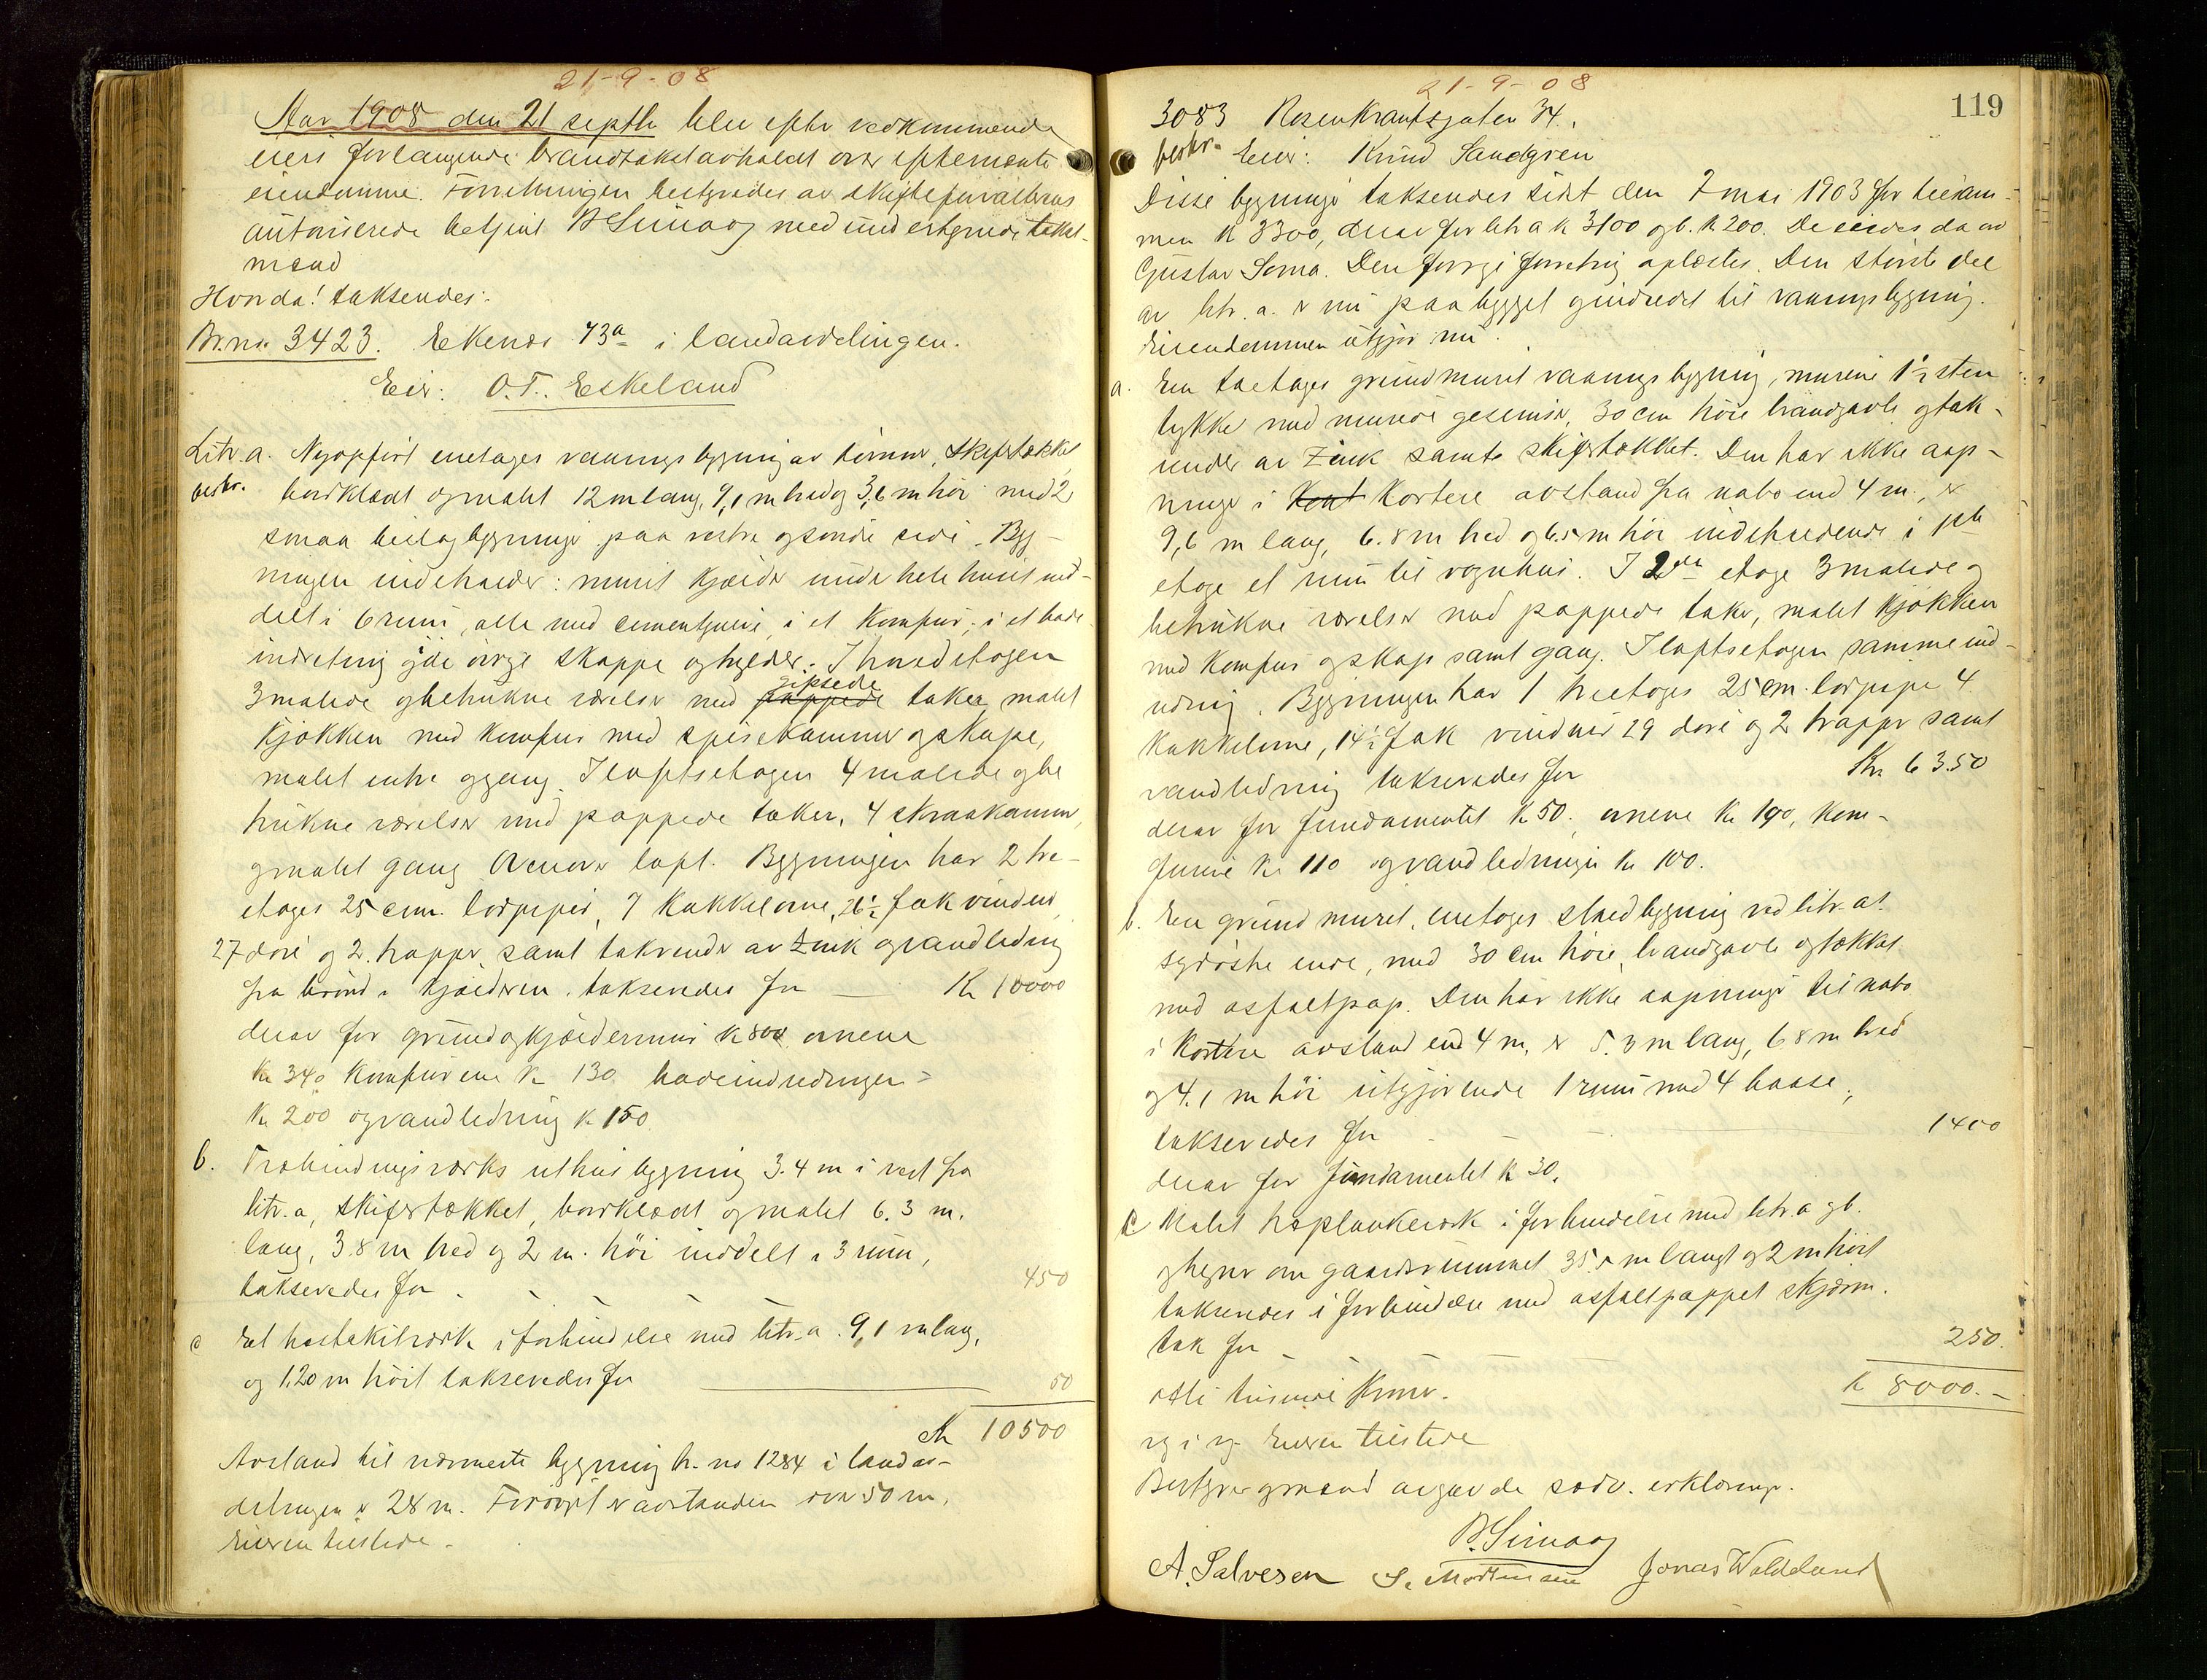 21-9-08
Aar 1908 den 21 septbr blev efter vedkommende
eiers forlangende brandtakst avholdt over efternævnte
eiendomme. Forretningen bestyredes av skifteforvalterens
autoriserede betjent B Simaas med undertegnede takst-
mænd
Hvorda! takseredes:
Br.nr. 3423. Ekenæs 73a i landavdelingen.
Eier: O.T. Eskeland
Litr. a. Nyopført enetages vaaningsbygning av tømmer, skifertækket
beskr. bordklædt og malet 12 m lang, 9,1 m bred og 3,6 m høi med 2
smaa tilbygninger paa vestre og søndre side. Byg-
ningen indeholder: muret kjælder under hele huset ind-
delt i 6 rum, alle med cementgulv, i et komfur, i et bade-
indretning i de øvrige skappe og hylder. I hovedetagen
3 malede og betrukne værelser med gipsede pappede taker, malet
kjøkken med komfur med spisekammer og skape,
malet entre og gang. I loftsetagen 4 malede og be
trukne værelser med pappede taker, 4 skraakammer,
og malet gang. Ovenover loft. Bygningen har 2 tre-
etages 25 cm. lodpiper, 7 kakkelovne, 26½ fak vinduer,
27 døre og 2 trapper samt takrender av zink og vandledning
fra brønd i kjælderen. takseredes for — Kr 10000
derav for grund og kjældermur kr 800 ovnene
kr 340 komfurene kr 130 badeindredningen
kr 200 og vandledning kr 150
b. Træbindingsverks uthusbygning 3.4 m i vest fra
litr. a, skifertækket, bordklædt og malet 6.3 m.
lang, 3.8 m bred og 2 m. høi inddelt i 3 rum,
takseredes for - - - - - 450
c Et hvitstakitværk i forbindelse med litr. a. 9,1 m lang,
og 1.20 m høit takseredes for — 50
Kr 10500
Avstand til nærmeste bygning br. no 1284 i landav-
delingen er 28 m. Forøvrigt er avstanden over 50 m.
Eieren tilstede.
21-9-08
119
3083 Rosenkrantsgaten 34.
beskr. Eier: Knud Sandgren
Disse bygninger takseredes sidst den 7 mai 1903 for tilsam-
men kr 3300, derav for litr a kr 3100 og b. kr 200. De eiedes da av
Gustav Soma. Den forrige forretning oplæstes. Den største del
av litr. a. er nu paabygget og indredet til vaaningsbygning.
Eiendommen utgjør nu:
a. En toetages grundmuret vaaningsbygning, murene 1½ sten
tykke med murede gesimser, 30 cm høie brandgavle og tak-
render av zink samt skifertækket. Den har ikke aap-
ninger i kort kortere avstand fra nabo end 4 m., er
9,6 m lang, 6.8 m bred og 6.5 m høi indeholdende i 1ste
etage et rum til vognhus. I 2den etage 3 malede og
betrukne værelser med pappede taker, malet kjøkken
med komfur og skap samt gang. I loftsetagen samme ind-
redning. Bygningen har 1 treetages 25 cm. lodpipe 4
kakkelovne, 14½ fak vinduer 19 døre og 2 trapper samt
vandledning takseredes for Kr 6350
derav for fundamentet kr 50. ovnene kr 190, kom-
furene kr 110 og vandledningen kr 100.
b. En grundmuret, enetages staldbygning ved litr. a's
sydøstre ende, med 30 cm høie brandgavle og tækket
med asfaltpap. Den har ikke aapninger til nabo
i kortere avstand end 4 m. er 5.3 m lang, 6.8 m bred
og 4.1 m høi utgjørende 1 rum med 4 baase,
takseredes for - - - 1400
derav for fundamentet kr 30.
c Malet træplankeverk i forbindelse med litr. a og b.
og hegner om gaardsrummet 35.5 m langt og 2 m høit
takseredes i forbindelse med asfaltpappet skjærm-
tak for - - 250.
otte tusinde kroner. kr 8000.-
Eieren tilstede
Bestyrer og mænd avgav de sædv. erklæringer.
B. Simaas
A. Salvesen S. Mortensen Jonas Waldeland